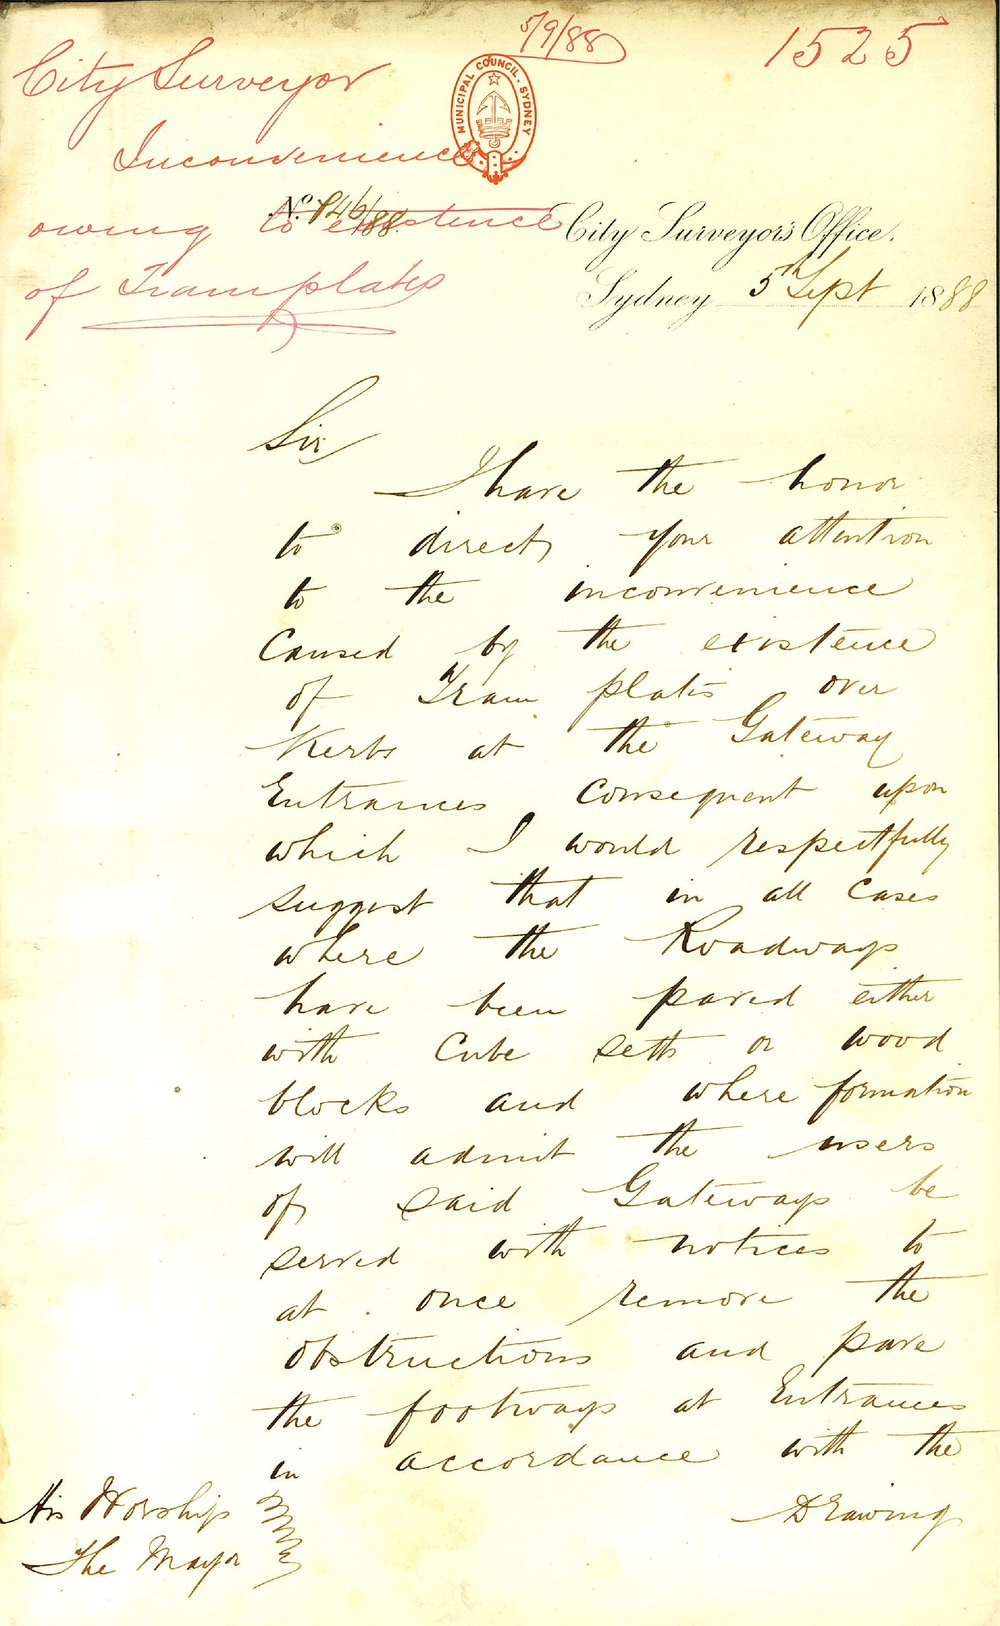 5/9/88
1525
City Surveyor
Inconvenience
owing to existence
of Tram plates
MUNICIPAL COUNCIL. SYDNEY
No. 846/88.
City Surveyor's Office.
Sydney 5th Sept 1888
Sir
I have the honor
to direct your attention
to the inconvenience
Caused by the existence
of Tram plates over
Kerbs at the Gateway
Entrances consequent upon
which I would respectfully
suggest that in all cases
where the Roadways
have been paved either
with Cube setts or wood
blocks and where formation
will admit the users
of said Gateways be
served with notices to
at once remove the
obstructions and pave
the footways at Entrances
in accordance with the
Drawing
His Worship
The Mayor